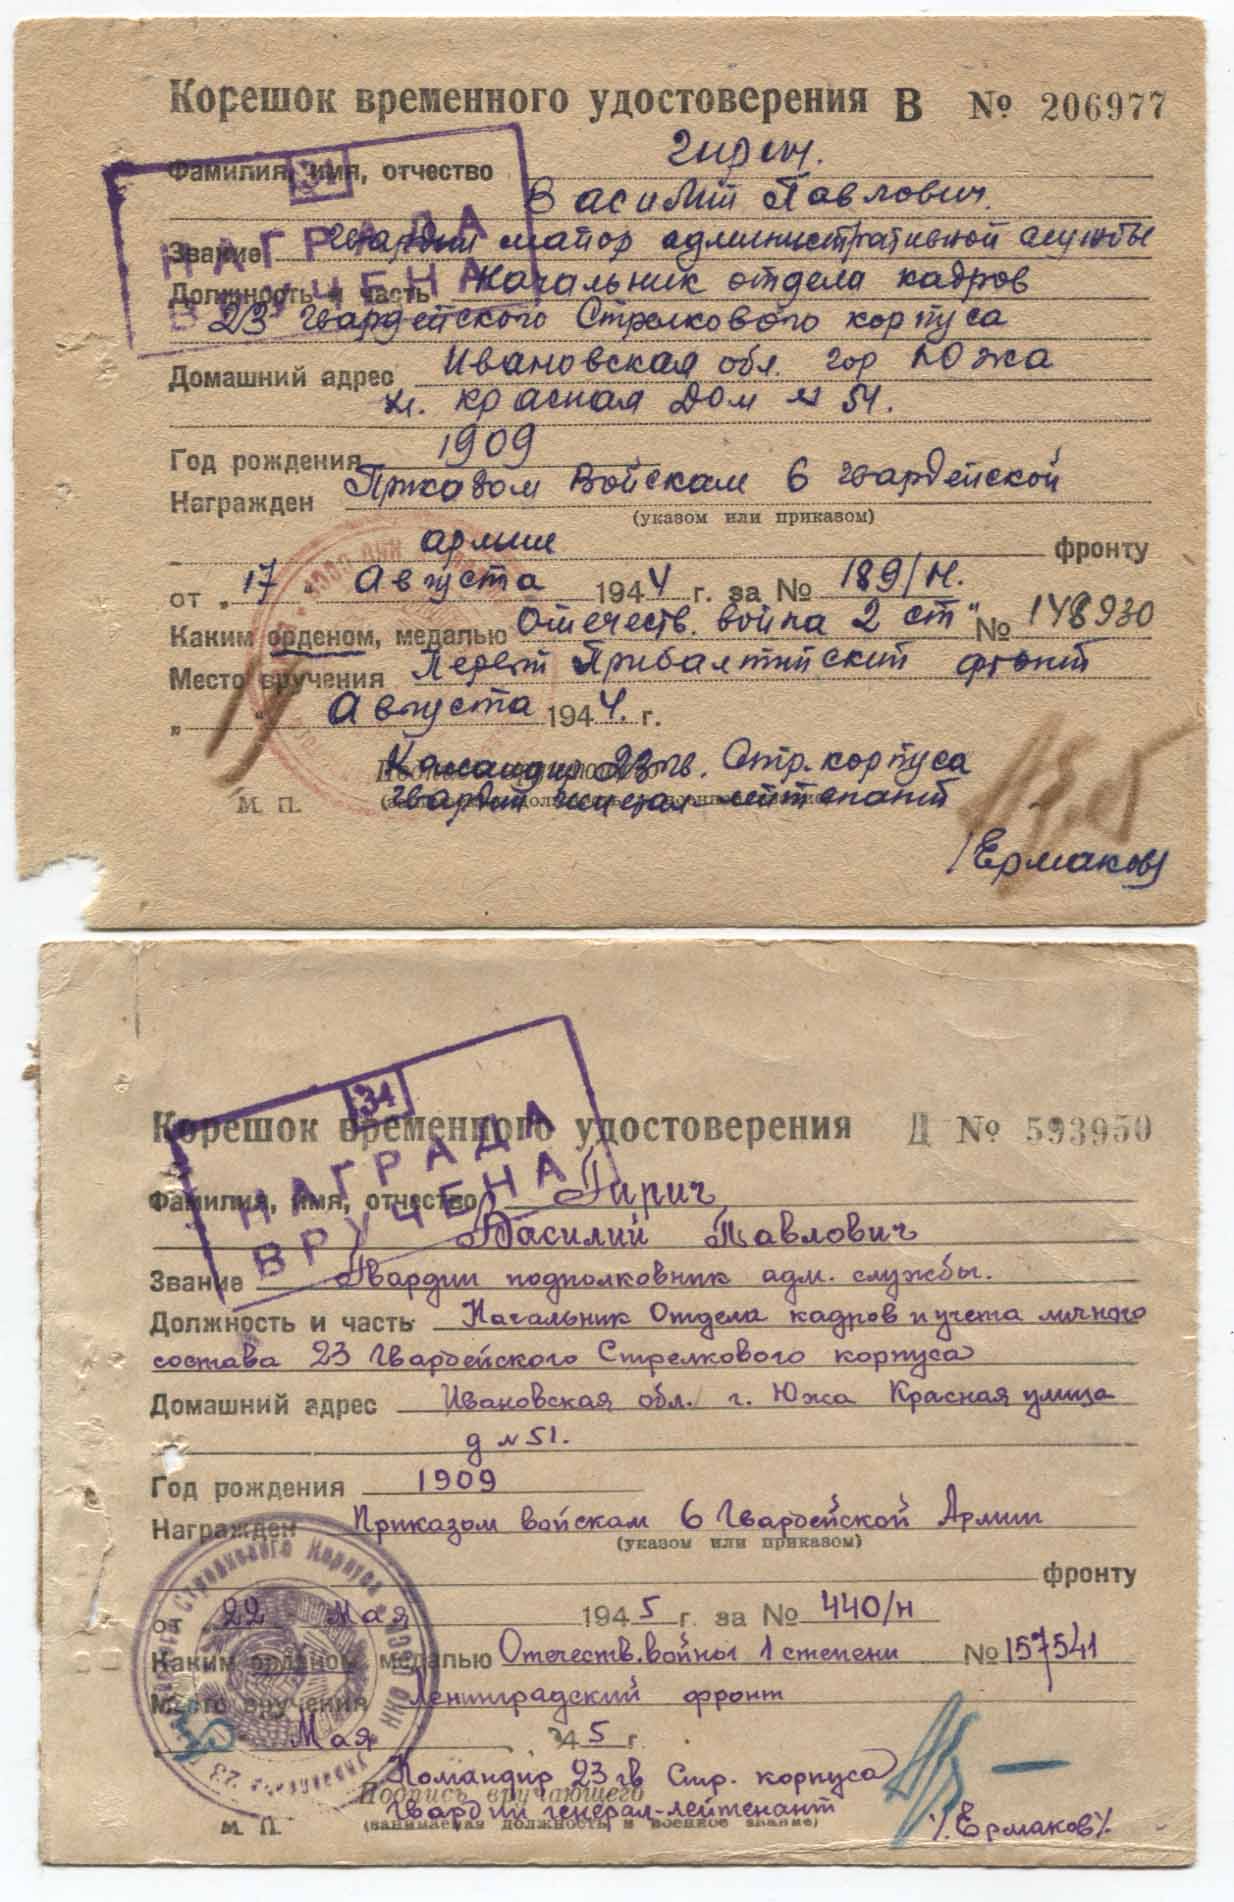 Корешок временного удостоверения В № 206977
Фамилия, имя, отчество Гирич.
Василий Павлович.
31
НАГРАДА
ВРУЧЕНА
Звание Гвардии майор административной службы
Должность и часть Начальник отдела кадров
23 Гвардейского Стрелкового корпуса
Домашний адрес Ивановская обл. гор Южа
ул. Красная Дом № 51.
Год рождения 1909
Награжден Приказом Войскам 6 гвардейской
(указом или приказом)
армии фронту
от „17" Августа 1944 г. за № 189/н.
Каким орденом, медалью Отечеств. война 2 ст" № 148930
Место вручения Первый Прибалтийский фронт
„ " Августа 1944. г.
Командир 23 гв. Стр. корпуса
гвардии генерал-лейтенант
М. П.
/Ермаков/
Корешок временного удостоверения Д № 593950
31
НАГРАДА
ВРУЧЕНА
Фамилия, имя, отчество Гирич
Василий Павлович
Звание Гвардии подполковник адм. службы.
Должность и часть Начальник Отдела кадров и учета личного
состава 23 Гвардейского Стрелкового корпуса
Домашний адрес Ивановская обл. г. Южа Красная улица
д № 51.
Год рождения 1909
Награжден Приказом войскам 6 Гвардейской Армии
(указом или приказом)
фронту
от 22 Мая 1945 г. за № 440/н
Каким орденом, медалью Отечеств. войны 1 степени № 157541
Место вручения Ленинградский фронт
Мая 45 г.
Командир 23 гв Стр. корпуса
Подпись вручающего
Гвардии генерал-лейтенант
М. П. (занимаемая должность и военное звание)
/Ермаков/